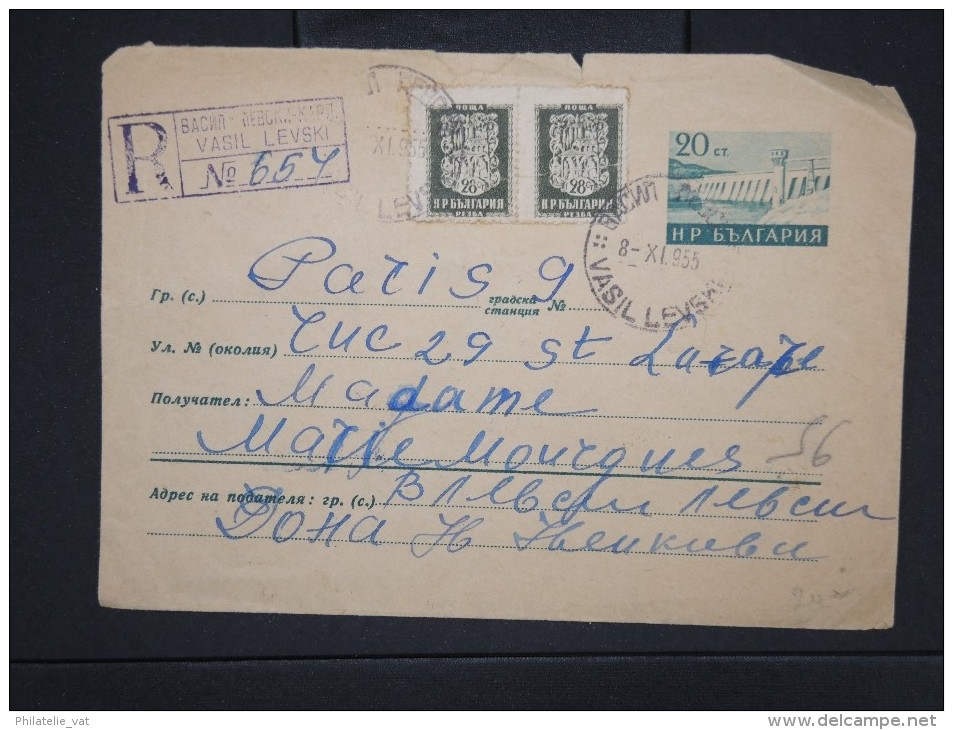 R
ВАСИЛ ЛЕВСКИ-КАРЛ.
VASIL LEVSKI
№ 657
XI.955
ПОЩА ПОЩА
28 28
Н Р БЪЛГАРИЯ Н Р БЪЛГАРИЯ
РЕЗБА РЕЗБА
20 СТ.
Н Р БЪЛГАРИЯ
ВАСИЛ
8-XI.955
VASIL LEVSKI
Гр. (с.) Paris 9 градска станция №
Ул. № (околия) 29 st Lazare
Получател: Madame
Marie Mourgues
56
Адрес на подателя: гр. (с.) В Левски Левски
Дона Н
Philatelie_vat
www.delcampe.net